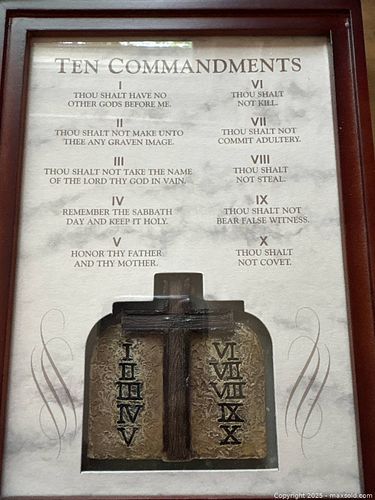 TEN COMMANDMENTS
I
THOU SHALT HAVE NO
OTHER GODS BEFORE ME.
II
THOU SHALT NOT MAKE UNTO
THEE ANY GRAVEN IMAGE.
III
THOU SHALT NOT TAKE THE NAME
OF THE LORD THY GOD IN VAIN.
IV
REMEMBER THE SABBATH
DAY AND KEEP IT HOLY.
V
HONOR THY FATHER
AND THY MOTHER.
VI
THOU SHALT
NOT KILL.
VII
THOU SHALT NOT
COMMIT ADULTERY.
VIII
THOU SHALT
NOT STEAL.
IX
THOU SHALT NOT
BEAR FALSE WITNESS.
X
THOU SHALT
NOT COVET.
I
II
III
IV
V
VI
VII
VIII
IX
X
Copyright 2025 - maxsold.com